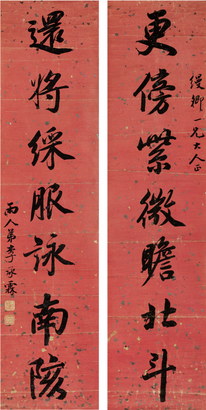 卿一兄大人正
更傍紫微瞻北斗
還將綵服詠南陔
雨人弟李承霖